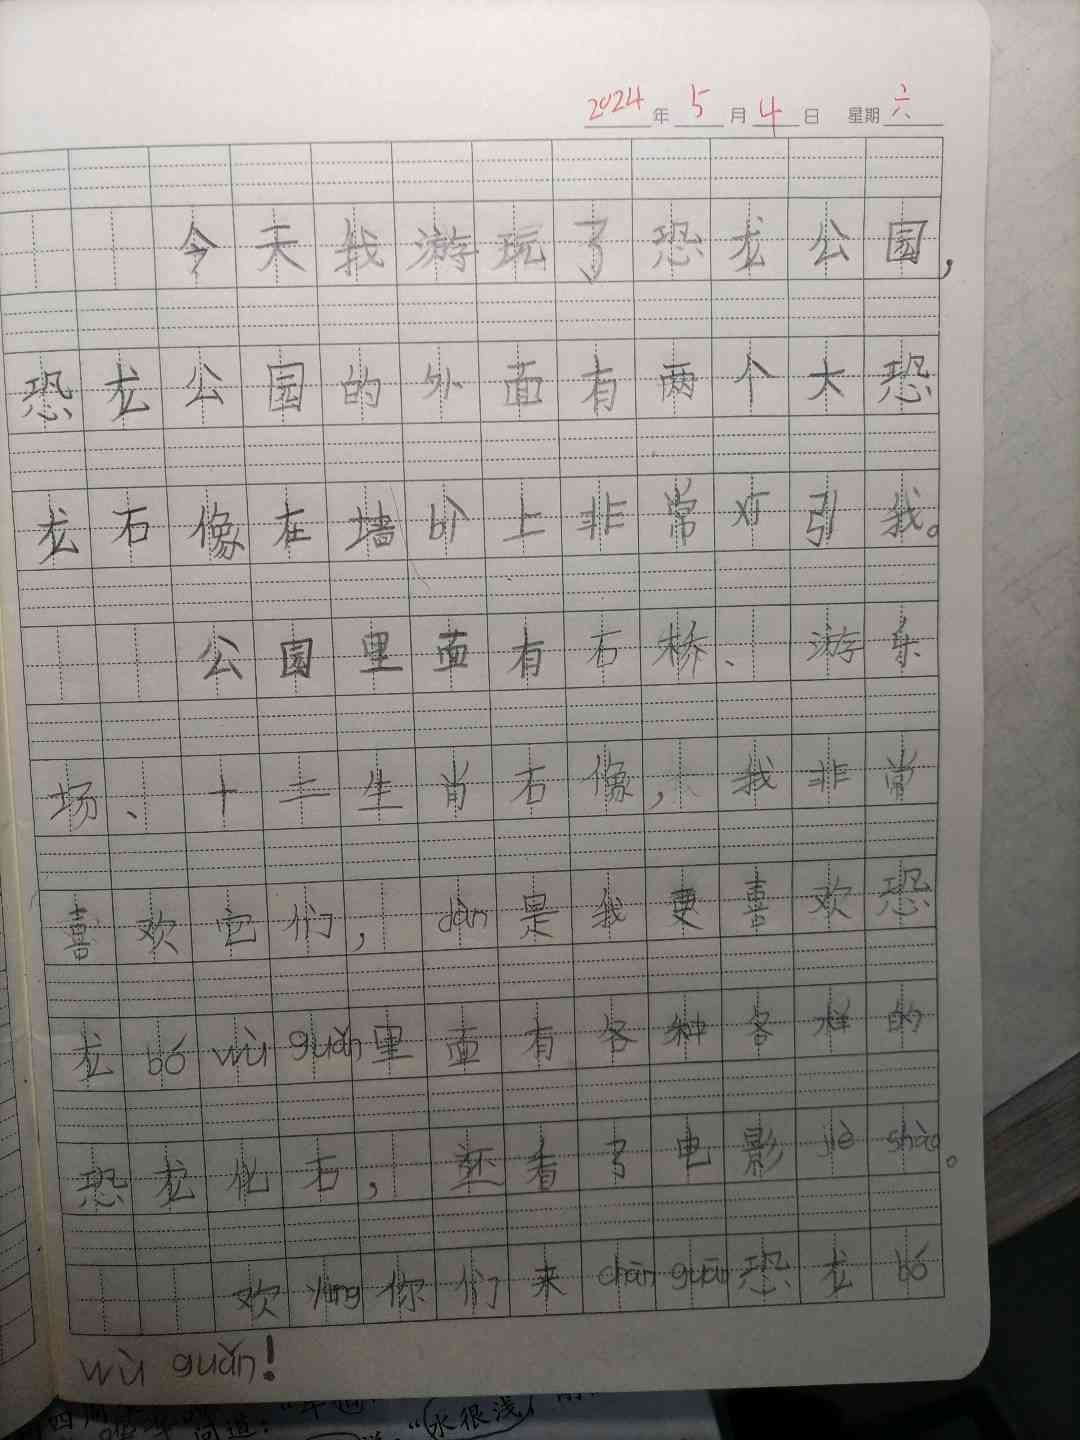 2024年5月4日 星期六
今天我游玩了恐龙公园,
恐龙公园的外面有两个大恐
龙石像在墙bì上非常引我。
公园里面有石桥、游乐
场、十二生肖石像,我非常
喜欢它们,dàn是我更喜欢恐
龙bó wù guǎn里面有各种各样的
恐龙化石,还看了电影jiè shào。
欢yíng你们来cān guān恐龙bó
wù guǎn!
问道:
"水很浅